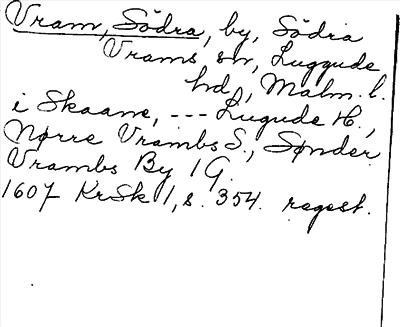 Vram, Södra, by, Södra
Vrams sn, Luggude
hd, Malm. l.
i Skaane, --- Lugude H.,
Nørre Vrambs S., Sønder
Vrambs By 1 G.
1607 KrSk 1, s. 354. regest.